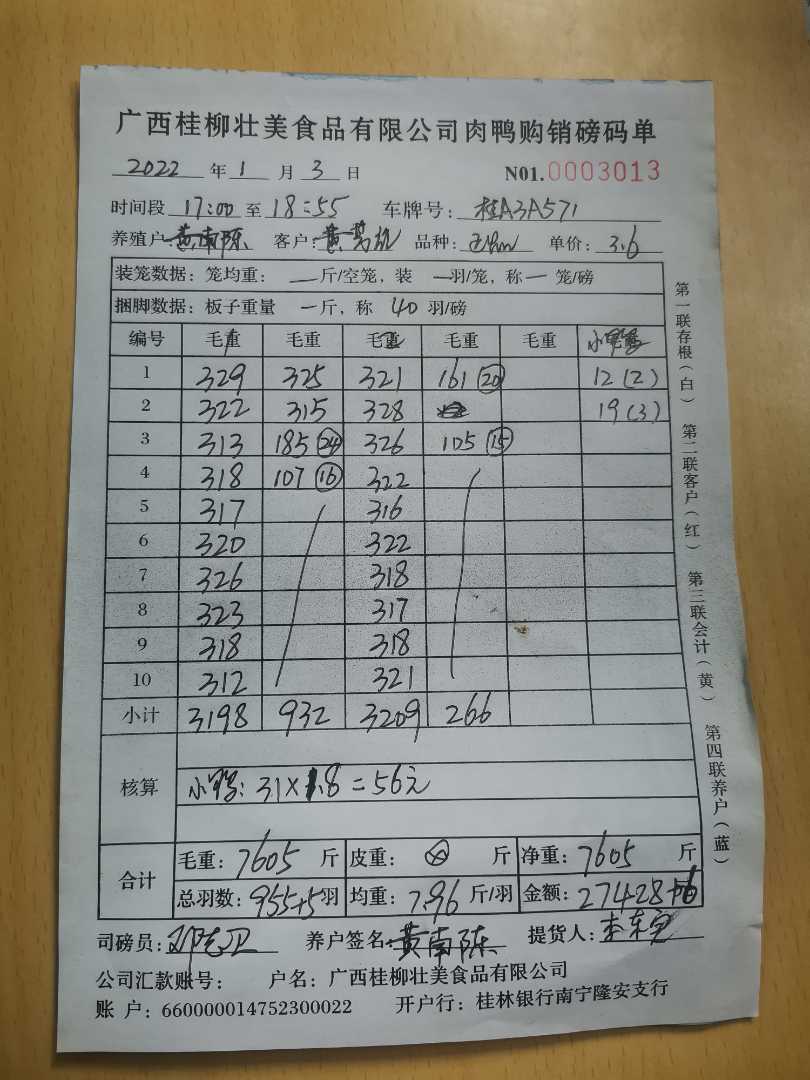 广西桂柳壮美食品有限公司肉鸭购销磅码单
2022 年 1 月 3 日 N01.0003013
时间段 17:00 至 18:55 车牌号: 桂A3A571
养殖户: 黄南陈 客户: 黄 品种: 单价: 3.6
装笼数据: 笼均重: — 斤/空笼, 装 — 羽/笼, 称 — 笼/磅
捆脚数据: 板子重量 — 斤, 称 40 羽/磅
编号 毛重 毛重 毛重 毛重 毛重 小
1 329 325 321 161 (20) 12 (2)
2 322 315 328 19 (3)
3 313 185 (24) 326 105 (15)
4 318 107 (16) 322
5 317 316
6 320 322
7 326 318
8 323 317
9 318 318
10 312 321
小计 3198 932 3209 266
核算 小鸭: 31×1.8=56元
合计 毛重: 7605 斤 皮重: 斤 净重: 7605 斤
总羽数: 955+5 羽 均重: 7.96 斤/羽 金额: 27428
司磅员: 养户签名: 黄南陈 提货人:
公司汇款账号: 户名: 广西桂柳壮美食品有限公司
账 户: 660000014752300022 开户行: 桂林银行南宁隆安支行
第一联存根(白) 第二联客户(红) 第三联会计(黄) 第四联养户(蓝)